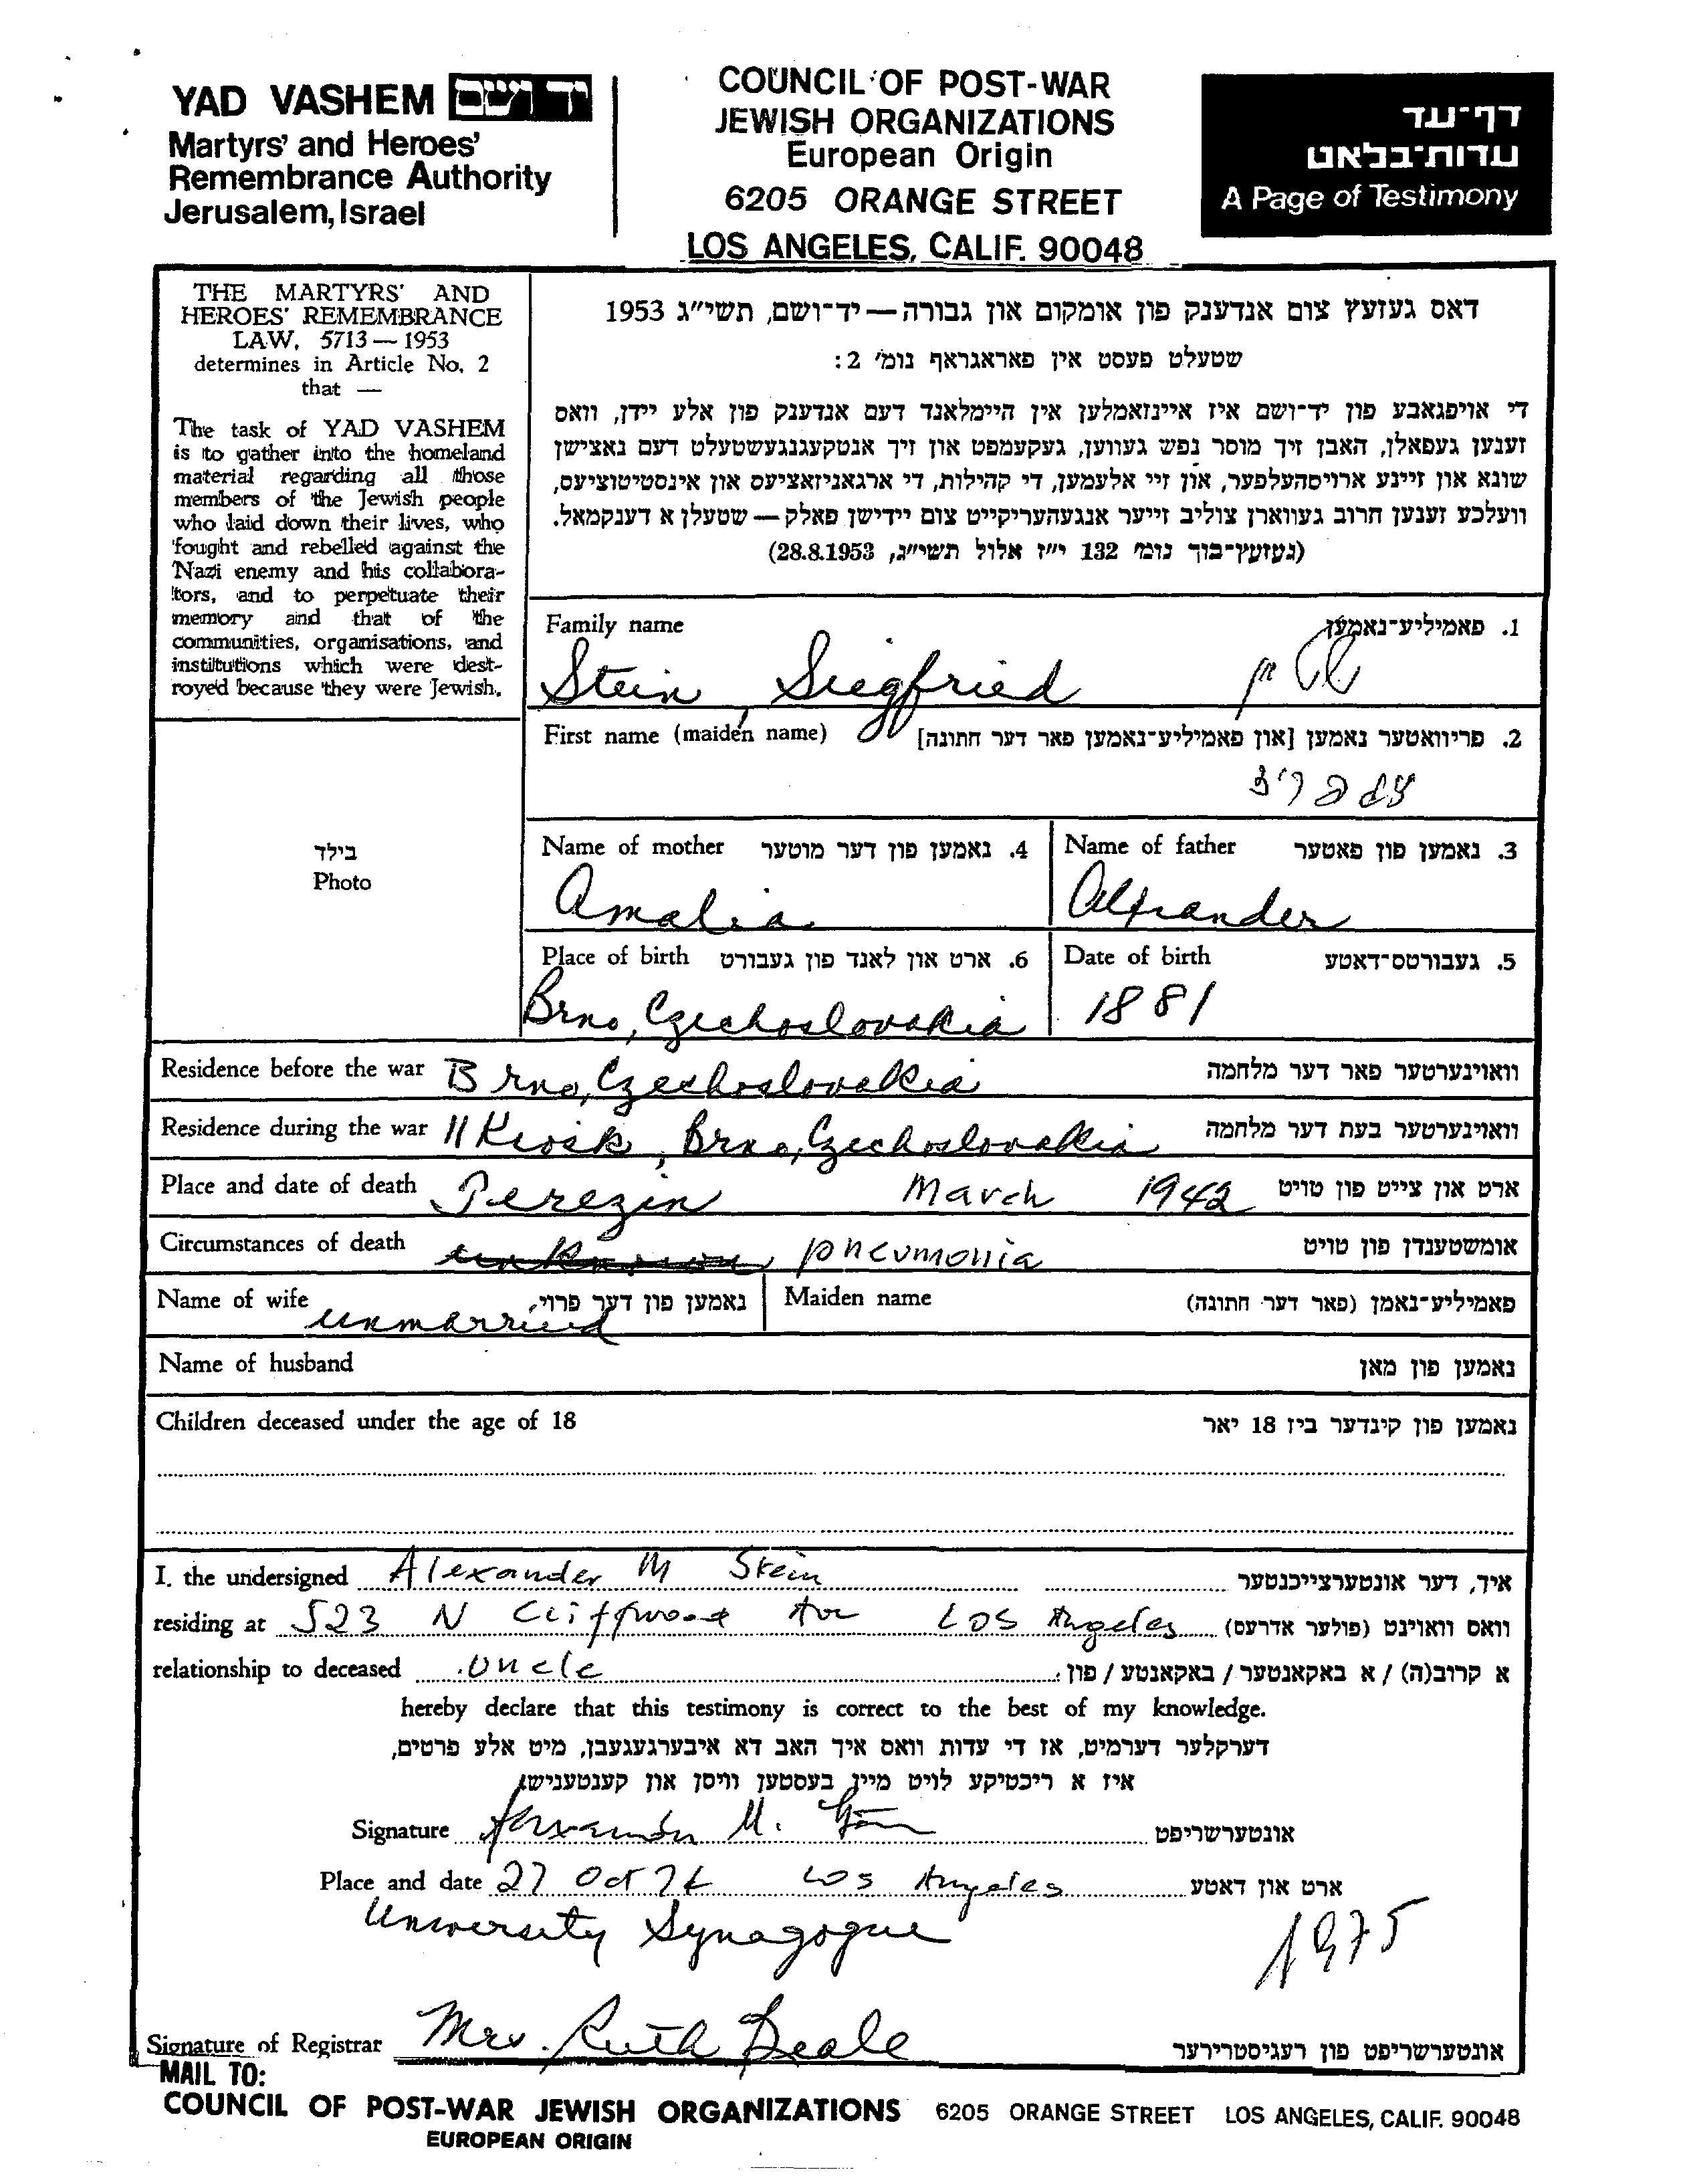 YAD VASHEM יד ושם
Martyrs' and Heroes'
Remembrance Authority
Jerusalem, Israel
COUNCIL OF POST-WAR
JEWISH ORGANIZATIONS
European Origin
6205 ORANGE STREET
LOS ANGELES, CALIF. 90048
דף־עד
עדות־בלאט
A Page of Testimony
THE MARTYRS' AND
HEROES' REMEMBRANCE
LAW, 5713 — 1953
determines in Article No. 2
that —
The task of YAD VASHEM
is to gather into the homeland
material regarding all those
members of the Jewish people
who laid down their lives, who
fought and rebelled against the
Nazi enemy and his collabora-
tors, and to perpetuate their
memory and that of the
communities, organisations, and
institutions which were dest-
royed because they were Jewish.
דאס געזעץ צום אנדענק פון אומקום און גבורה — יד־ושם, תשי״ג 1953
שטעלט פעסט אין פאראגראף נומ׳ 2:
די אויפגאבע פון יד־ושם איז איינזאמלען אין היימלאנד דעם אנדענק פון אלע יידן, וואס
זענען געפאלן, האבן זיך מוסר נפש געווען, געקעמפט און זיך אנטקעגנגעשטעלט דעם נאצישן
שונא און זיינע ארויסהעלפער, און זיי אלעמען, די קהילות, די ארגאניזאציעס און אינסטיטוציעס,
וועלכע זענען חרוב געווארן צוליב זייער אנגעהעריקייט צום יידישן פאלק — שטעלן א דענקמאל.
(געזעץ־בוך נומ׳ 132 י״ז אלול תשי״ג, 28.8.1953)
Family name 1. פאמיליע־נאמען
Stein, Siegfried שטיין
First name (maiden name) 2. פריוואטער נאמען [און פאמיליע־נאמען פאר דער חתונה]
בילד
Photo
Name of mother 4. נאמען פון דער מוטער
Amalia
Name of father 3. נאמען פון פאטער
Alexander
Place of birth 6. ארט און לאנד פון געבורט
Brno, Czechoslovakia
Date of birth 5. געבורטס־דאטע
1881
Residence before the war Brno, Czechoslovakia וואוינערטער פאר דער מלחמה
Residence during the war 11 Kiosk, Brno, Czechoslovakia וואוינערטער בעת דער מלחמה
Place and date of death Terezin March 1942 ארט און צייט פון טויט
Circumstances of death unknown pneumonia אומשטענדן פון טויט
Name of wife unmarried נאמען פון דער פרוי
Maiden name פאמיליע־נאמן (פאר דער חתונה)
Name of husband נאמען פון מאן
Children deceased under the age of 18 נאמען פון קינדער ביז 18 יאר
I, the undersigned Alexander M Stein איך, דער אונטערצייכנטער
residing at 523 N Cliffwood Ave Los Angeles וואס וואוינט (פולער אדרעס)
relationship to deceased Uncle א קרוב(ה) / א באקאנטער / באקאנטע / פון:
hereby declare that this testimony is correct to the best of my knowledge.
דערקלער דערמיט, אז די עדות וואס איך האב דא איבערגעגעבן, מיט אלע פרטים,
איז א ריכטיקע לויט מיין בעסטען וויסן און קענטעניש.
Signature Alexander M. Stein אונטערשריפט
Place and date 27 Oct 74 Los Angeles ארט און דאטע
University Synagogue
1975
Signature of Registrar Mrs. Ruth Beale אונטערשריפט פון רעגיסטרירער
MAIL TO:
COUNCIL OF POST-WAR JEWISH ORGANIZATIONS 6205 ORANGE STREET LOS ANGELES, CALIF. 90048
EUROPEAN ORIGIN